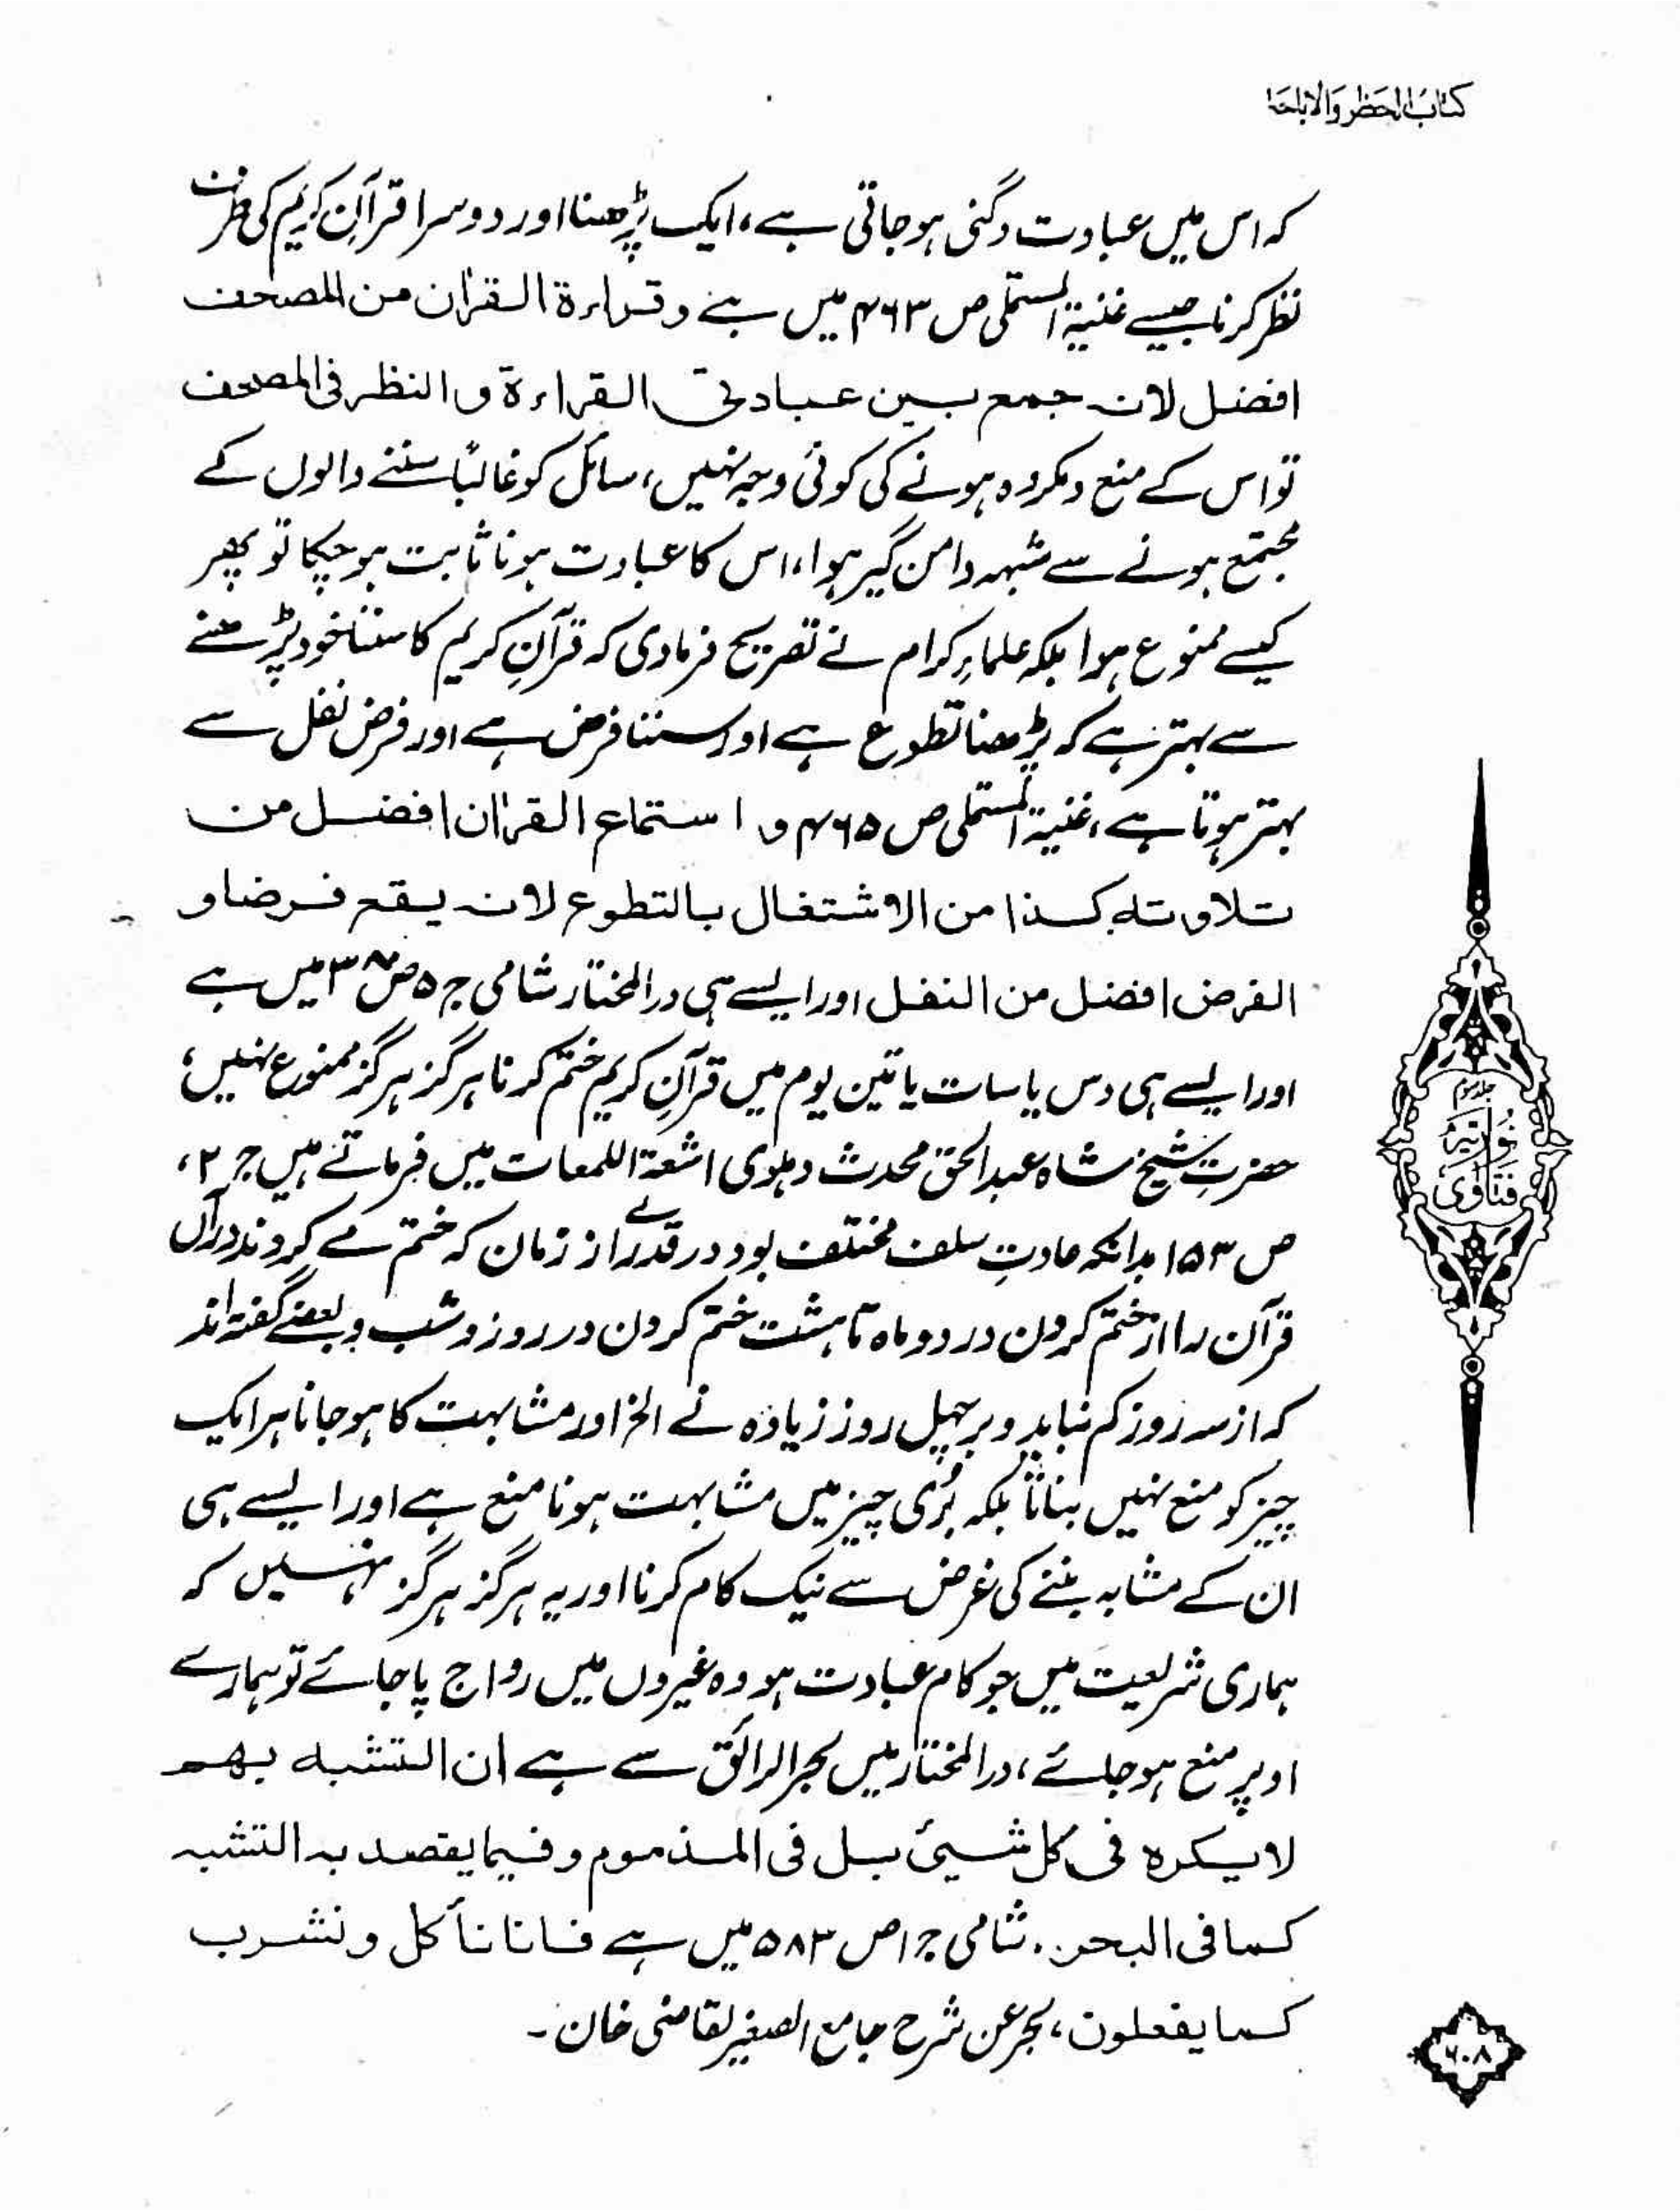 کتاب الحظر والاباحۃ
کہ اس میں عبادت دگنی ہو جاتی ہے، ایک پڑھنا اور دوسرا قرآنِ کریم کی طرف
نظر کرنا جیسے غنیۃ المستملی ص ۴۶۳ میں ہے وقراءۃ القراٰن من المصحف
افضل لانہ جمع بین عبادتی القراءۃ والنظر فی المصحف
تو اس کے منع و مکروہ ہونے کی کوئی وجہ نہیں، سائل کو غالبًا سننے والوں کے
مجتمع ہونے سے شبہہ دامن گیر ہوا، اس کا عبادت ہونا ثابت ہو چکا تو پھر
کیسے ممنوع ہوا بلکہ علماءِ کرام نے تصریح فرما دی کہ قرآنِ کریم کا سننا خود پڑھنے
سے بہتر ہے کہ پڑھنا تطوع ہے اور سننا فرض ہے اور فرض نفل سے
بہتر ہوتا ہے، غنیۃ المستملی ص ۴۶۵ و استماع القراٰن افضل من
تلاوتہ کذا من الاشتغال بالتطوع لانہ یقع فرضا و
الفرض افضل من النفل اور ایسے ہی درالمختار شامی ج ۵ ص میں ہے
اور ایسے ہی دس یا سات یا تین یوم میں قرآنِ کریم ختم کرنا ہرگز ہرگز ممنوع نہیں،
حضرتِ شیخ شاہ عبدالحق محدث دہلوی اشعۃ اللمعات میں فرماتے ہیں ج ۲،
ص ۱۵۳ بدانکہ عادتِ سلف مختلف بود در قدرے از زمان کہ ختم مے کردند درآں
قرآن را از ختم کردن در دو ماہ تا ہشت ختم کردن در روز و شب و بعضے گفتہ اند
کہ از سہ روز کم نباید و بر چہل روز زیادہ نے الخ اور مشابہت کا ہو جانا ہر ایک
چیز کو منع نہیں بناتا بلکہ بُری چیز میں مشابہت ہونا منع ہے اور ایسے ہی
ان کے مشابہ بننے کی غرض سے نیک کام کرنا اور یہ ہرگز ہرگز نہیں کہ
ہماری شریعت میں جو کام عبادت ہو وہ غیروں میں رواج پا جائے تو ہمارے
اوپر منع ہو جائے، درالمختار میں بحرالرائق سے ہے ان التشبہ بھم
لا یکرہ فی کل شیئ بل فی المذموم و فیما یقصد بہ التشبہ
کما فی البحر. شامی ج ۱ ص ۵۸۳ میں ہے فانا ناٴکل و نشرب
کما یفعلون، بحر عن شرح جامع الصغیر لقاضی خان۔
جلد سوم
نوریہ
فتاوٰی
۶۰۸